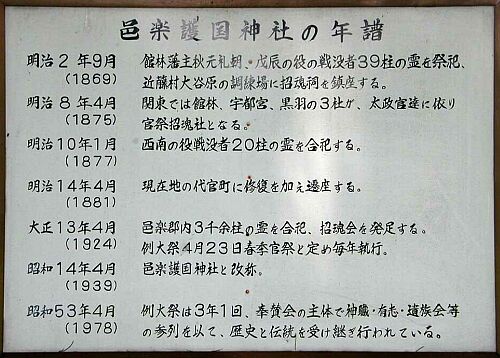 邑楽護国神社の年譜
明治2年9月 館林藩主秋元礼朝、戊辰の役の戦没者39柱の霊を祭祀、
(1869) 近藤村大谷原の訓練場に招魂祠を鎮座する。
明治8年4月 関東では館林、宇都宮、黒羽の3社が、太政官達に依り
(1875) 官祭招魂社となる。
明治10年1月 西南の役戦没者20柱の霊を合祀する。
(1877)
明治14年4月 現在地の代官町に修復を加え遷座する。
(1881)
大正13年4月 邑楽郡内3千余柱の霊を合祀、招魂会を発足する。
(1924) 例大祭4月23日春季官祭と定め毎年執行。
昭和14年4月 邑楽護国神社と改称。
(1939)
昭和53年4月 例大祭は3年1回、奉賛会の主体で神職・有志・遺族会等
(1978) の参列を以て、歴史と伝統を受け継ぎ行われている。